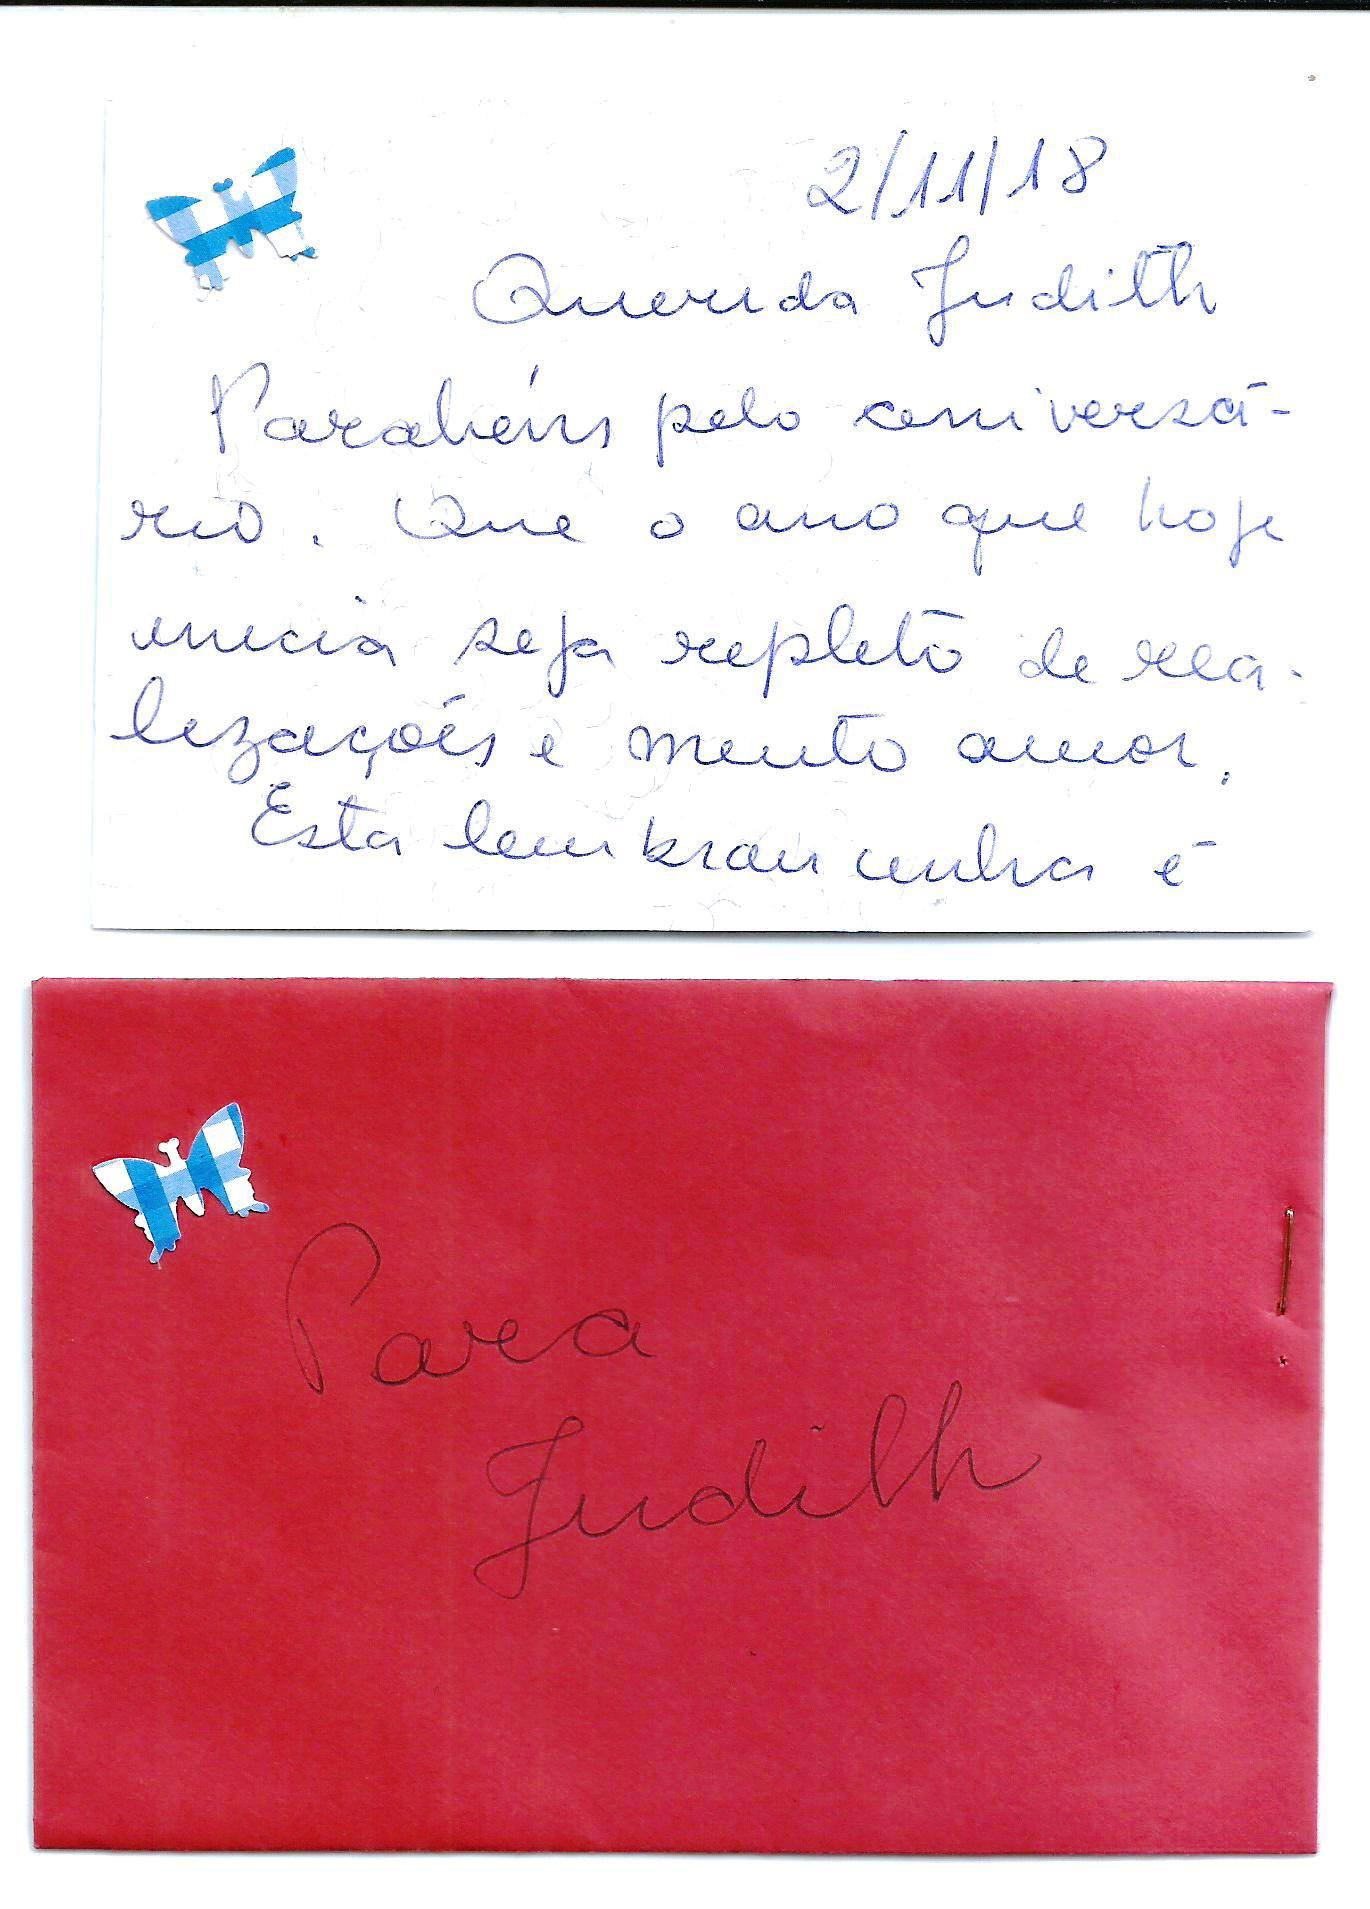 2/11/18
Querida Judith
Parabéns pelo aniversá-
rio. Que o ano que hoje
inicia seja repleto de rea-
lizações e muito amor.
Esta lembrancinha é
Para
Judith